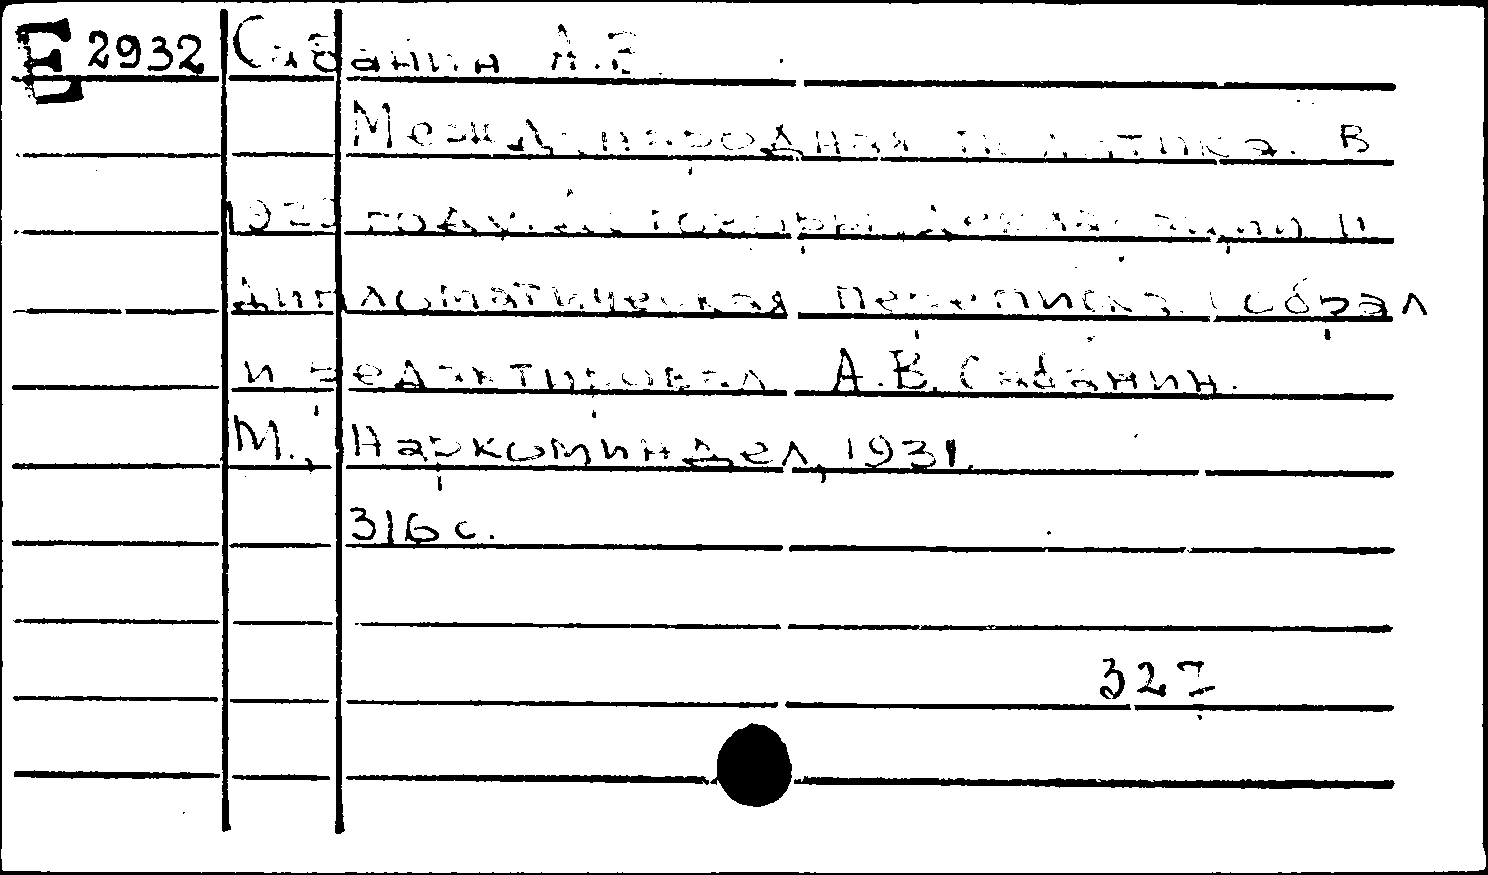 Е 2932 Сабанин А.В.
Международная политика в
году. Договоры, декларации и
дипломатическая переписка. Собрал
и редактировал А.В. Сабанин.
М., Наркоминдел, 1931.
316 с.
327